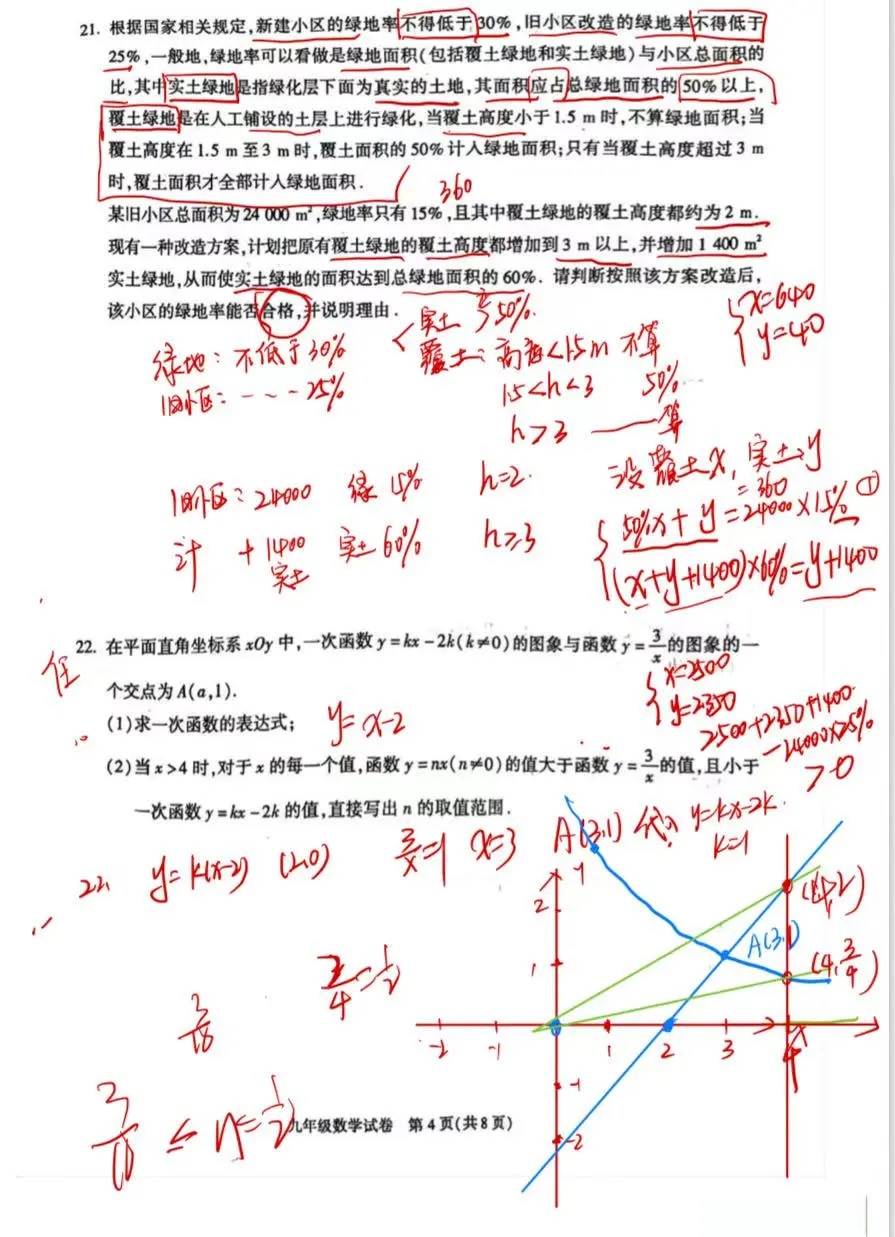 21. 根据国家相关规定,新建小区的绿地率不得低于30%,旧小区改造的绿地率不得低于
25%,一般地,绿地率可以看做是绿地面积(包括覆土绿地和实土绿地)与小区总面积的
比,其中实土绿地是指绿化层下面为真实的土地,其面积应占总绿地面积的50%以上,
覆土绿地是在人工铺设的土层上进行绿化,当覆土高度小于1.5 m时,不算绿地面积;当
覆土高度在1.5 m至3 m时,覆土面积的50%计入绿地面积;只有当覆土高度超过3 m
时,覆土面积才全部计入绿地面积.
360
某旧小区总面积为24 000 m²,绿地率只有15%,且其中覆土绿地的覆土高度都约为2 m.
现有一种改造方案,计划把原有覆土绿地的覆土高度都增加到3 m以上,并增加1 400 m²
实土绿地,从而使实土绿地的面积达到总绿地面积的60%. 请判断按照该方案改造后,
该小区的绿地率能否合格,并说明理由.
x=640
y=40
绿地: 不低于30%
旧小区: - - - 25%
实土 ≥50%.
覆土: 高度<1.5m 不算
1.5<h<3 50%
h>3 —— 算
旧小区: 24000 绿 15% h=2.
设覆土x, 实土y
=360
50%x+y=24000×15% ①
计 +1400 实土60% h≥3
实土
(x+y+1400)×60%=y+1400
22. 在平面直角坐标系xOy中,一次函数y=kx-2k(k≠0)的图象与函数y=3/x的图象的一
个交点为A(a,1).
x=2500
y=2350
(1)求一次函数的表达式;
y=x-2
2500+2350+1400
-24000×25%
>0
(2)当x>4时,对于x的每一个值,函数y=nx(n≠0)的值大于函数y=3/x的值,且小于
一次函数y=kx-2k的值,直接写出n的取值范围.
22. y=k(x-2) (2,0) 3/x=1 x=3 A(3,1) 代入 y=kx-2k.
k=1
y
2
(4,2)
A(3,1)
1
(4,3/4)
2/4=1/2
3/16
-2 -1 1 2 3 4 x
-1
-2
3/16 ≤ n ≤ 1/2
九年级数学试卷 第4页(共8页)